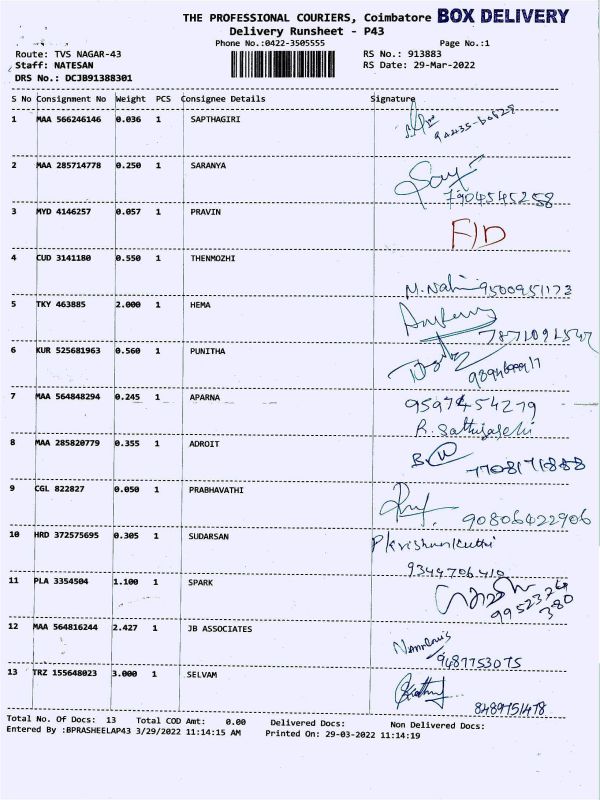 THE PROFESSIONAL COURIERS, Coimbatore BOX DELIVERY
Delivery Runsheet - P43
Phone No.:0422-3505555 Page No.:1
Route: TVS NAGAR-43 RS No.: 913883
Staff: NATESAN RS Date: 29-Mar-2022
DRS No.: DCJB91388301
S No Consignment No Weight PCS Consignee Details Signature
1 MAA 566246146 0.036 1 SAPTHAGIRI
2 MAA 285714778 0.250 1 SARANYA
7904545258
3 MYD 4146257 0.057 1 PRAVIN F/D
4 CUD 3141180 0.550 1 THENMOZHI
9500951173
5 TKY 463885 2.000 1 HEMA
6 KUR 525681963 0.560 1 PUNITHA
7 MAA 564848294 0.245 1 APARNA 9597454279
8 MAA 285820779 0.355 1 ADROIT
7708171888
9 CGL 822827 0.050 1 PRABHAVATHI
90806422906
10 HRD 372575695 0.305 1 SUDARSAN
9344706410
11 PLA 3354504 1.100 1 SPARK
9952324
380
12 MAA 564816244 2.427 1 JB ASSOCIATES
9487753075
13 TRZ 155648023 3.000 1 SELVAM
8489751478
Total No. Of Docs: 13 Total COD Amt: 0.00 Delivered Docs: Non Delivered Docs:
Entered By :BPRASHEELAP43 3/29/2022 11:14:15 AM Printed On: 29-03-2022 11:14:19